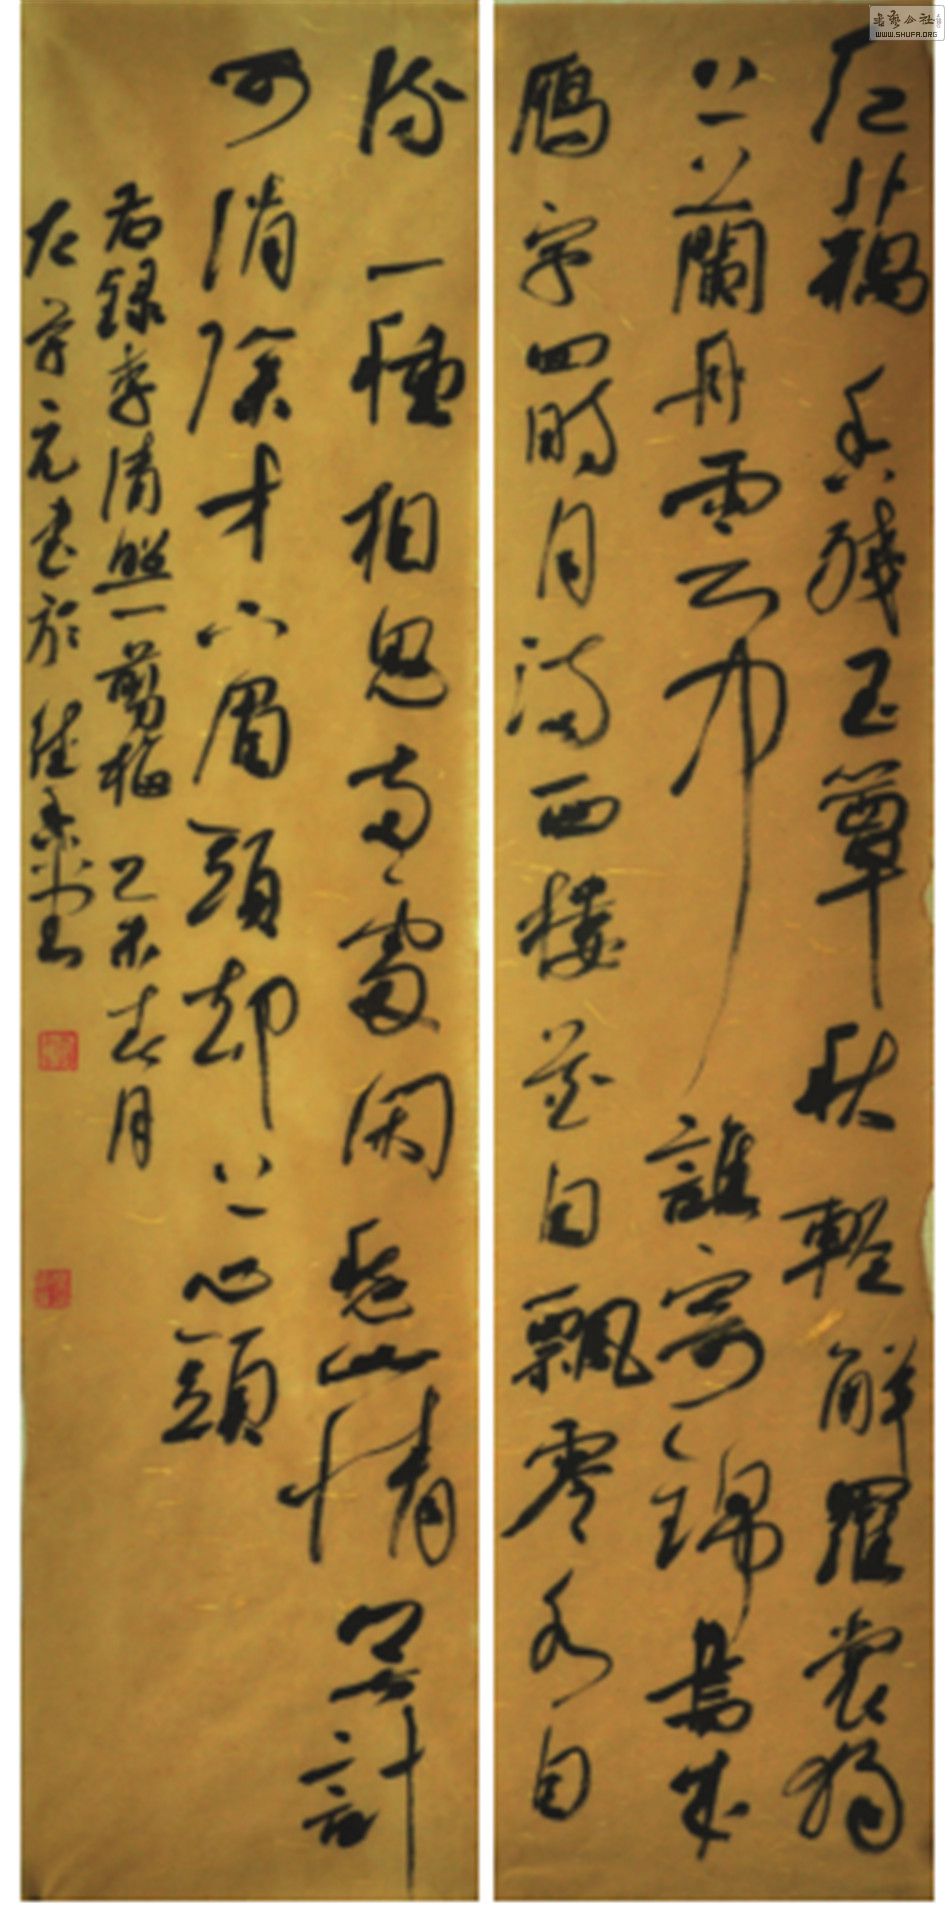 红藕香殘玉簟秋輕解羅裳獨
上蘭舟雲中誰寄錦書來
鴈字回時月滿西樓花自飄零水自
流一種相思兩處閑愁此情無計
可消除才下眉頭却上心頭
右録李清照一剪梅乙未春月
左元書於
書藝公社
WWW.SHUFA.ORG